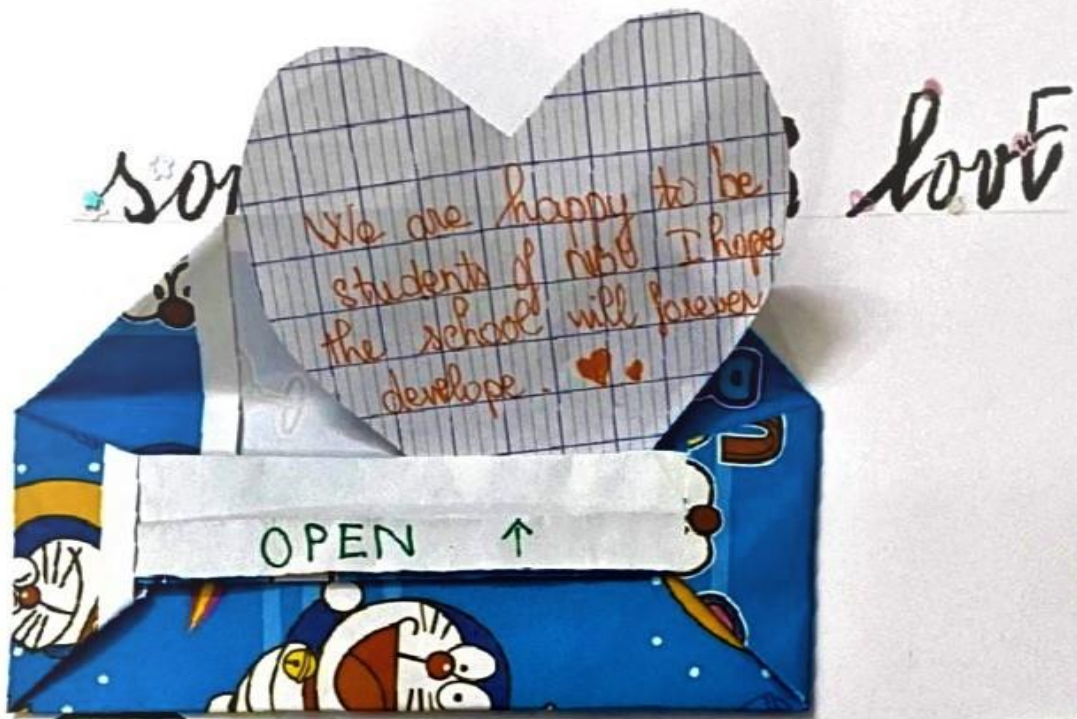 love
We are happy to be
students of I hope
the school will forever
develope.
OPEN ↑